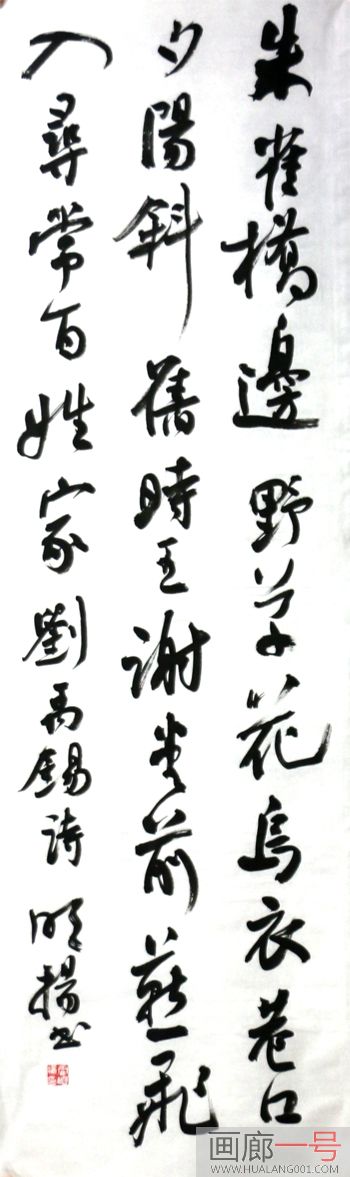 朱雀橋邊野草花烏衣巷口
夕陽斜舊時王謝堂前燕飛
入尋常百姓家劉禹錫詩明揚书
画廊一号
WWW.HUALANG001.COM